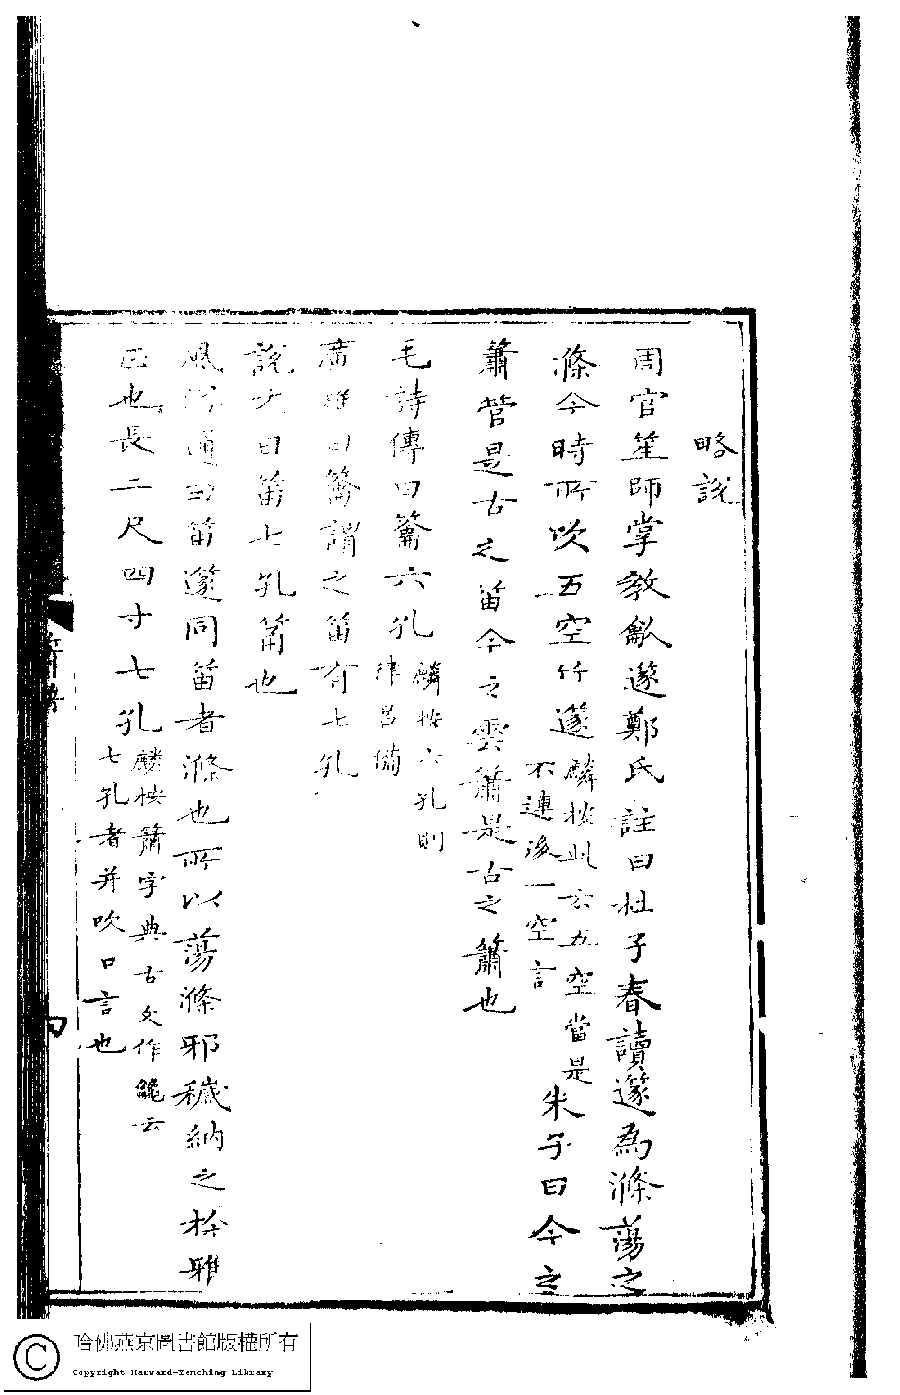 略說
周官笙師掌教龡篴鄭氏註曰杜子春讀篴為滌蕩之
滌今時所吹五空竹篴
麟按此云五空當是
不連後一空言
朱子曰今之
簫管是古之笛今之雲簫是古之簫也
毛詩傳曰籥六孔
麟按六孔則
律呂備
廣雅曰籥謂之笛有七孔
說文曰笛七孔筩也
風俗通曰笛篴同笛者滌也所以蕩滌邪穢納之於雅
正也長二尺四寸七孔
麟按簫字典古文作 云
七孔者并吹口言也
哈佛燕京圖書館版權所有
Copyright Harvard-Yenching Library